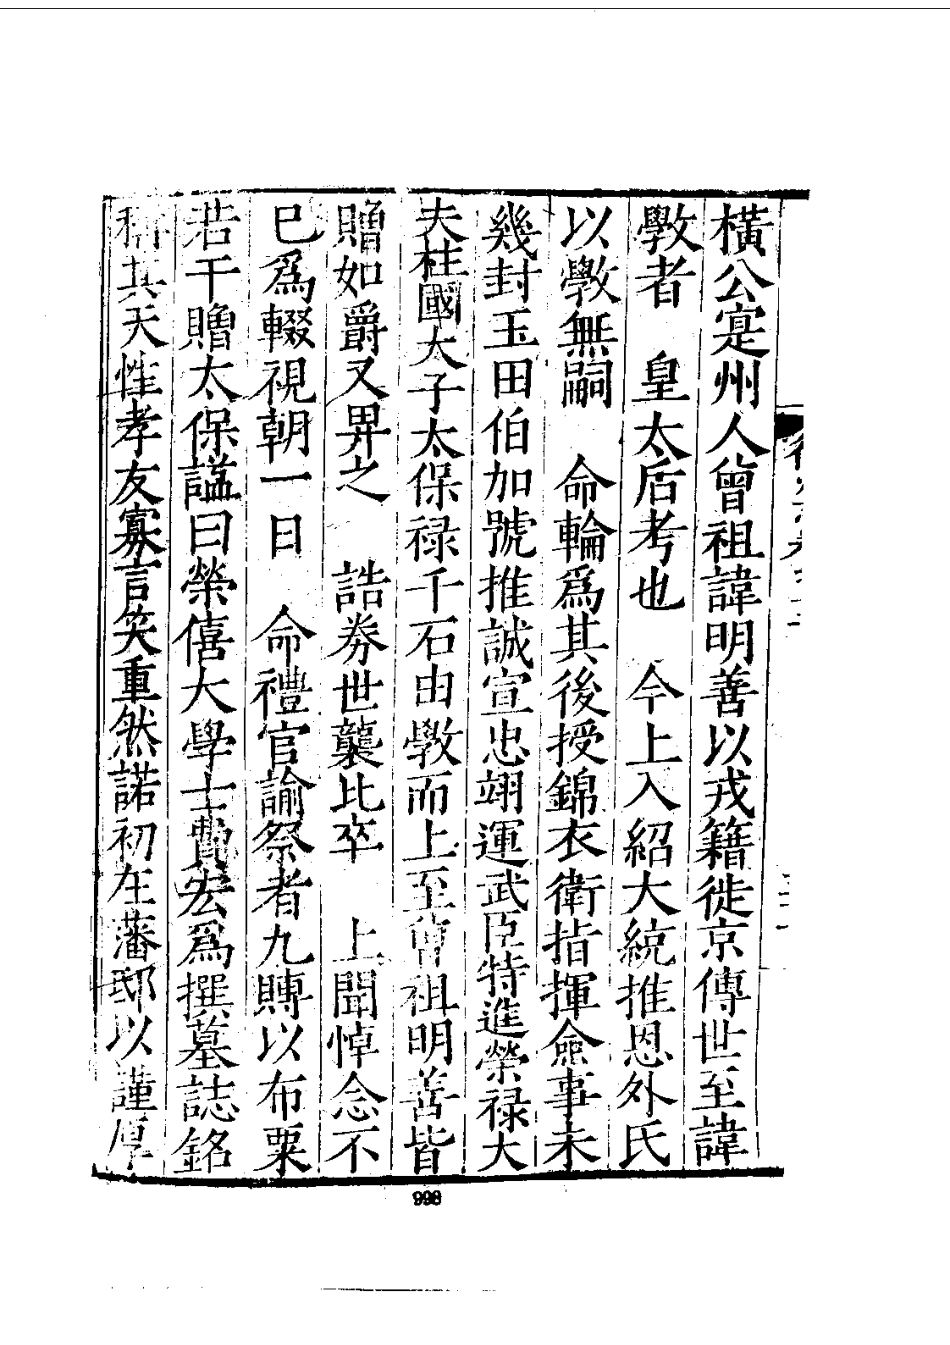 橫公寔州人曾祖諱明善以戎籍徙京傳世至諱
斆者　皇太后考也　今上入紹大統推恩外氏
以斆無嗣　命輪爲其後授錦衣衛指揮僉事未
幾封玉田伯加號推誠宣忠翊運武臣特進榮祿大
夫柱國太子太保祿千石由斆而上至曾祖明善皆
贈如爵又畀之　誥券世襲比卒　上聞悼念不
已爲輟視朝一日　命禮官諭祭者九賻以布粟
若干贈太保諡曰榮僖大學士費宏爲撰墓誌銘
稱其天性孝友寡言笑重然諾初在藩邸以謹厚
998